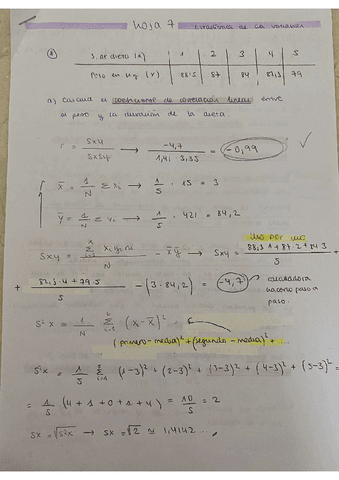 Hoja 7 Estadística de dos variables
① S. de dieta (X) 1 2 3 4 5
Peso en kg (Y) 88.5 87 84 82,5 79
a) Calcula el coeficiente de correlación lineal entre
el peso y la duración de la dieta.
r = Sxy / SxSy → -4,7 / 1,41 · 3,35 = -0,99 ✓
x̄ = 1/N Σ xi → 1/5 · 15 = 3
ȳ = 1/N Σ yi → 1/5 · 421 = 84,2
uno por uno
Sxy = Σ xi yi ni / N - x̄ȳ → Sxy = 88,5·1 + 87·2 + 84·3 / 5 =
+ 82,5·4 + 79·5 / 5 - (3 · 84,2) = -4,7 → calculadora
hacerlo paso a
paso.
S²x = 1/N Σ (xi - x̄)² =
(primero - media)² + (segundo - media)² + ...
S²x = 1/5 Σ (1-3)² + (2-3)² + (3-3)² + (4-3)² + (5-3)² =
= 1/5 (4 + 1 + 0 + 1 + 4) = 10/5 = 2
Sx = √S²x → Sx = √2 ≃ 1,4142...